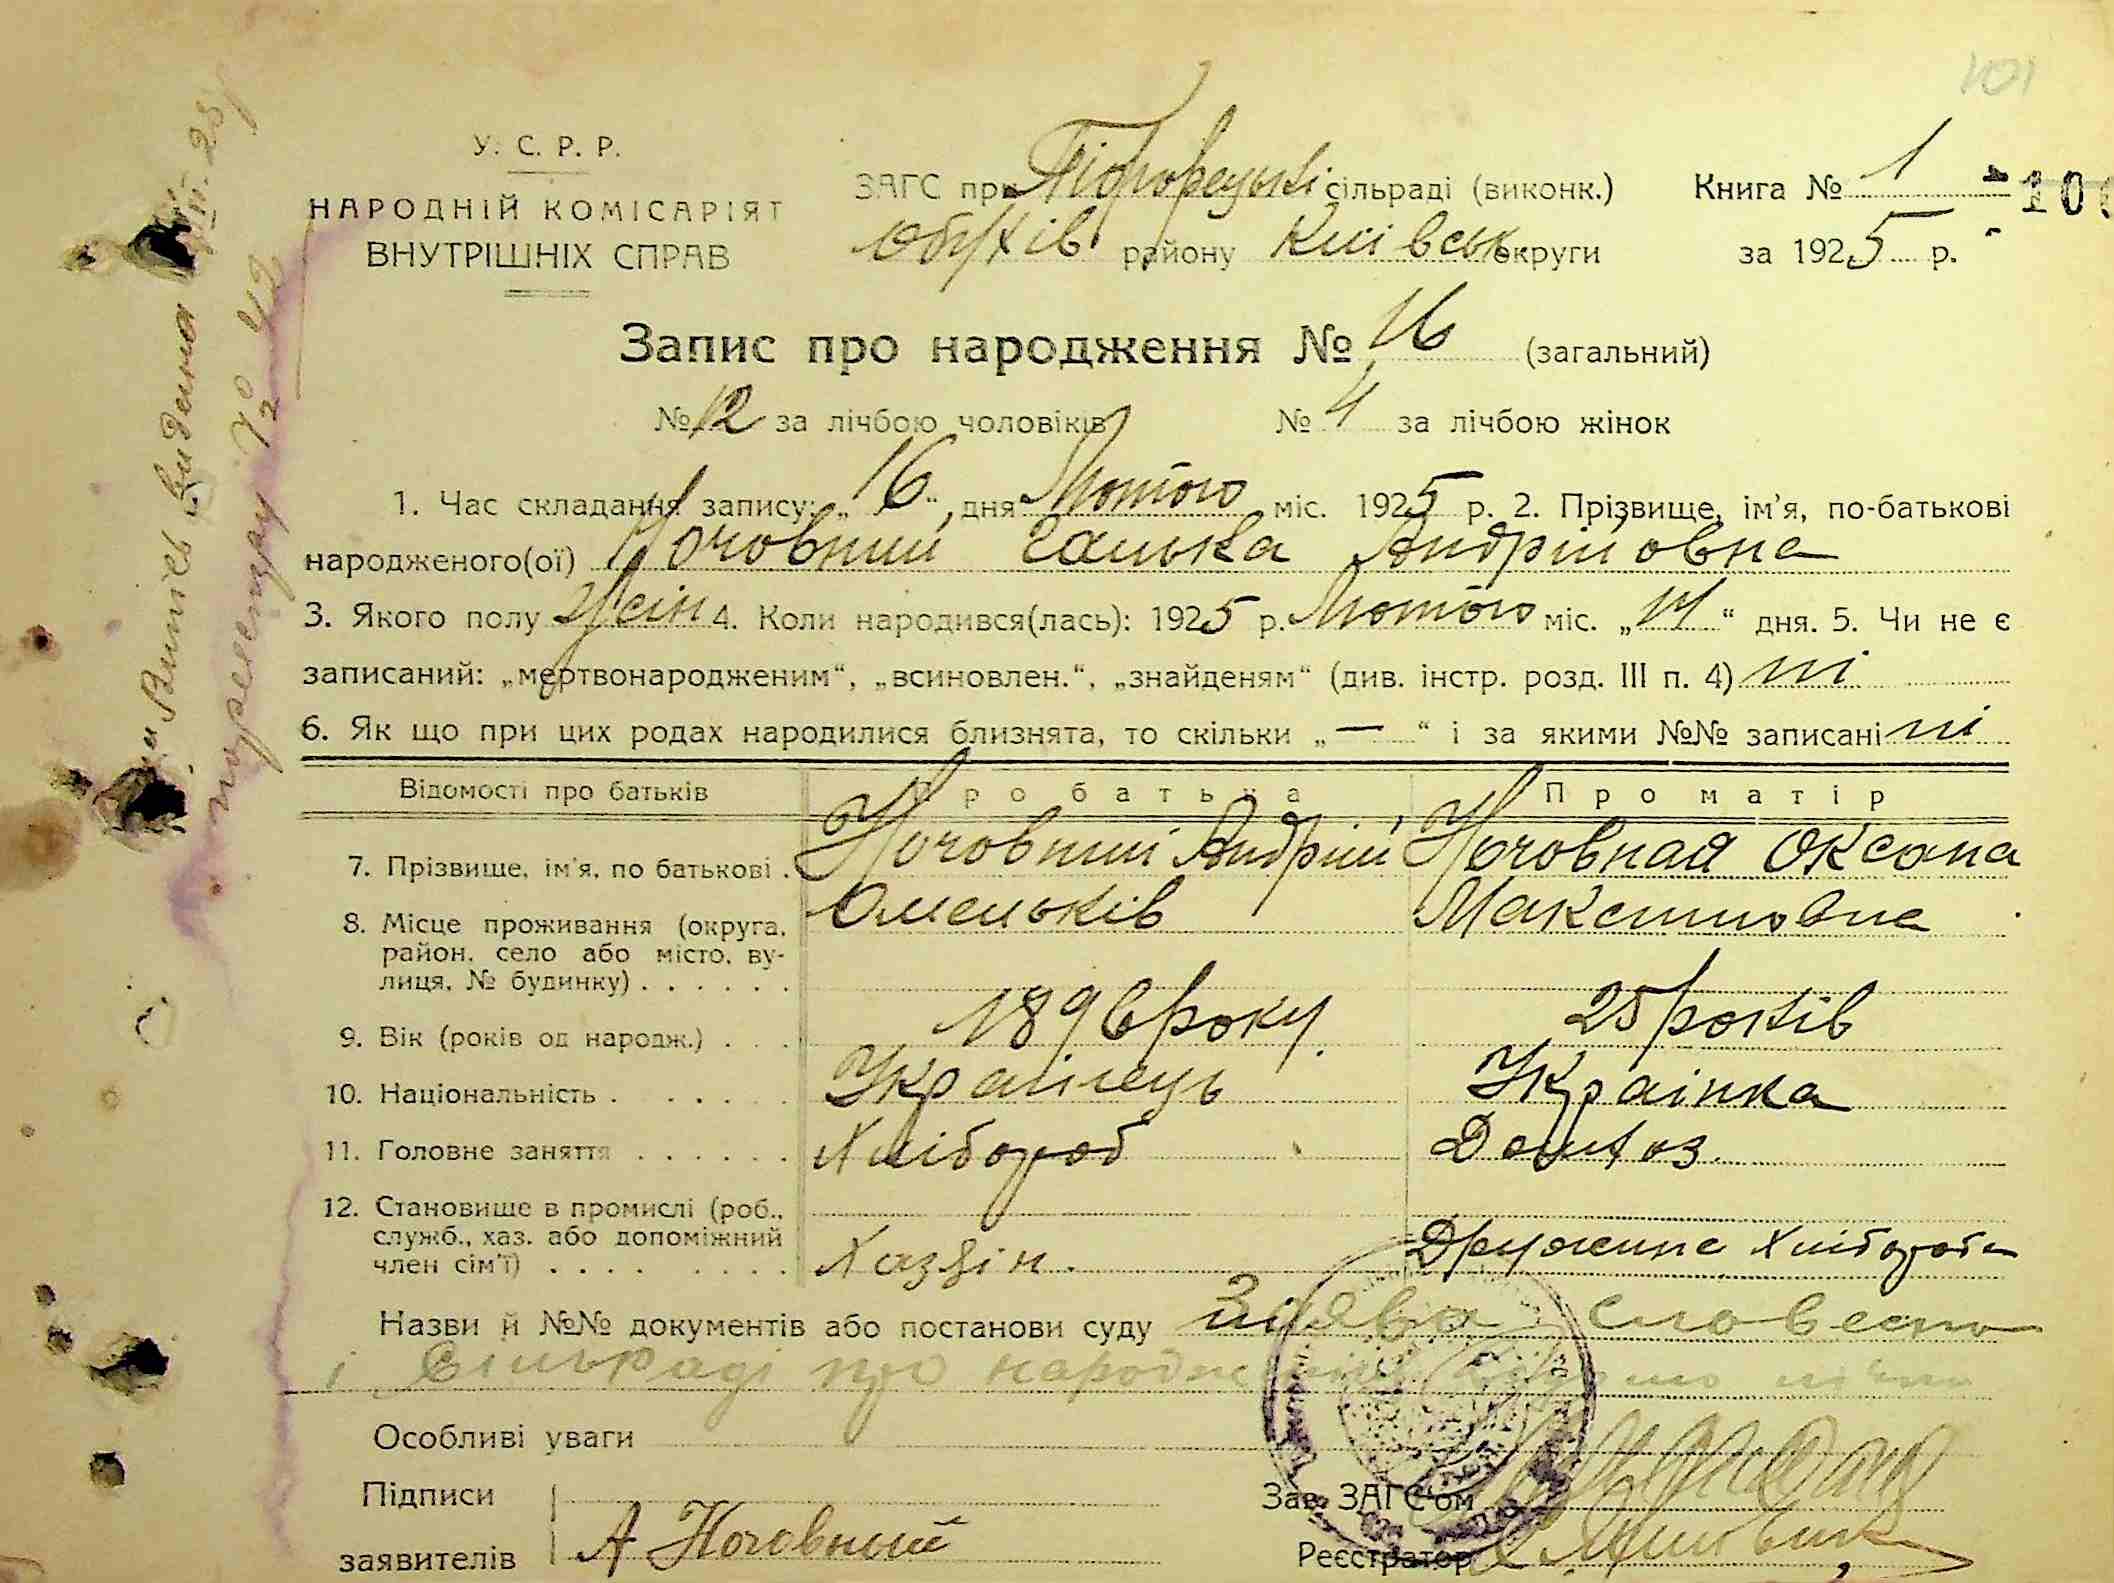 101
У. С. Р. Р.
НАРОДНІЙ КОМІСАРІЯТ
ВНУТРІШНІХ СПРАВ
ЗАГС при Підгорецькі сільраді (виконк.)
Обухів району Київськ округи
Книга № 1
за 1925 р.
Запис про народження № 16 (загальний)
№ 12 за лічбою чоловіків № 4 за лічбою жінок
1. Час складання запису: „16" дня Лютого міс. 1925 р. 2. Прізвище, ім'я, по-батькові
народженого(ої) Ночовний Галька Андрійовна
3. Якого полу жін 4. Коли народився(лась): 1925 р. Лютого міс. „14" дня. 5. Чи не є
записаний: „мертвонародженим", „всиновлен.", „знайденям" (див. інстр. розд. III п. 4) ні
6. Як що при цих родах народилися близнята, то скільки „—" і за якими №№ записані ні
Відомості про батьків Про батька Про матір
7. Прізвище, ім'я, по батькові . Ночовний Андрій Ночовная Оксана
Омельків Максимовна
8. Місце проживання (округа,
район, село або місто, ву-
лиця, № будинку) . . . . . .
9. Вік (років од народж.) . . . 1896 року. 25 років
10. Національність . . . . . . Українець Українка
11. Головне заняття . . . . . . Хлібороб Домхоз.
12. Становище в промислі (роб.,
служб., хаз. або допоміжний
член сім'ї) . . . . . . . . Хазяін. Дружина Хлібороба
Назви й №№ документів або постанови суду Заява словесна
і Сільраді про народж
Особливі уваги
Підписи
заявителів А Ночовный
Зав. ЗАГС'ом
Реєстратор
Випись видана
№ 42